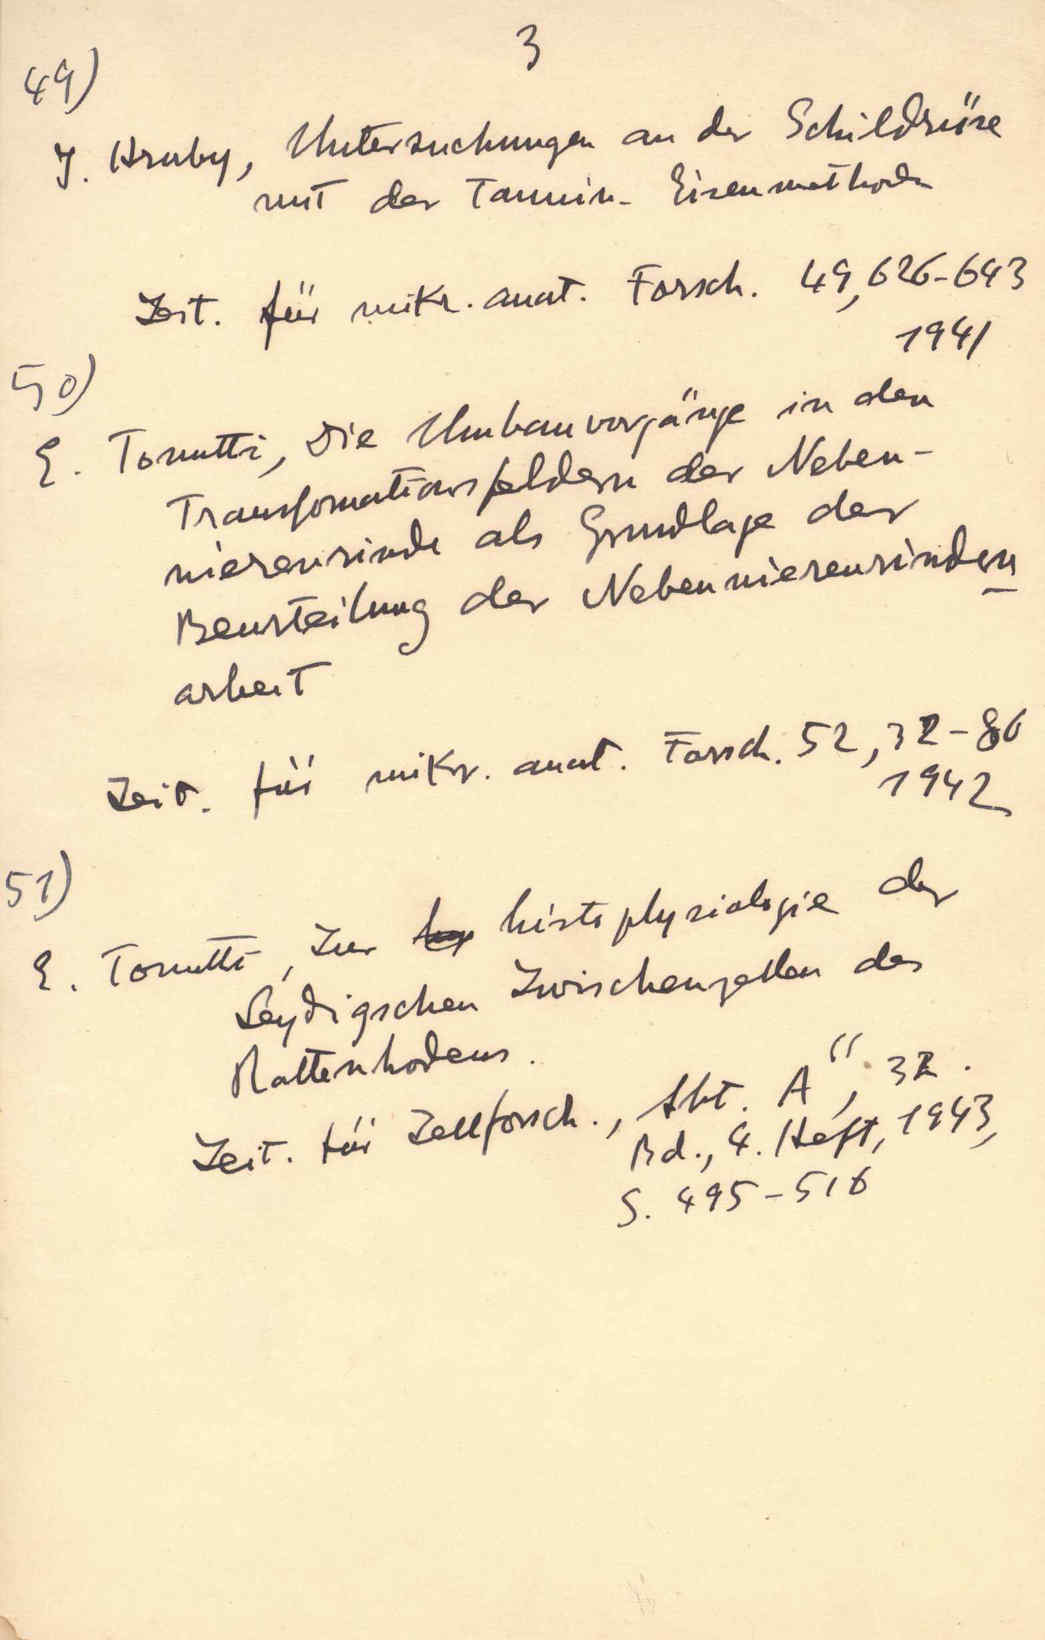 3
49)
J. Hruby, Untersuchungen an der Schildrüse
mit der Tannin- Eisenmethode
Zeit. für mikr. anat. Forsch. 49, 626-643
1941
50)
E. Tonutti, Die Umbauvorgänge in den
Transfomationsfeldern der Neben-
nierenrinde als Grundlage der
Beurteilung der Nebennierenrinden
arbeit
Zeit. für mikr. anat. Forsch. 52, 32-86
1942
51)
E. Tonutti, Zur histophysiologie der
Leydigschen Zwischenzellen des
Rattenhodens.
Zeit. für Zellforsch., Abt. A", 32.
Bd., 4. Heft, 1943,
S. 495-516